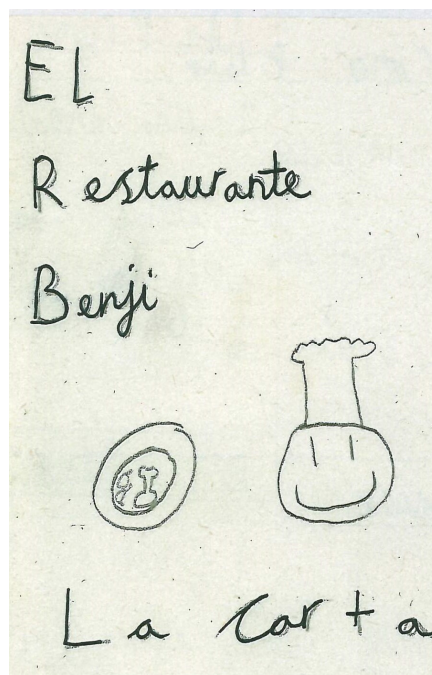 EL
Restaurante
Benji
La carta